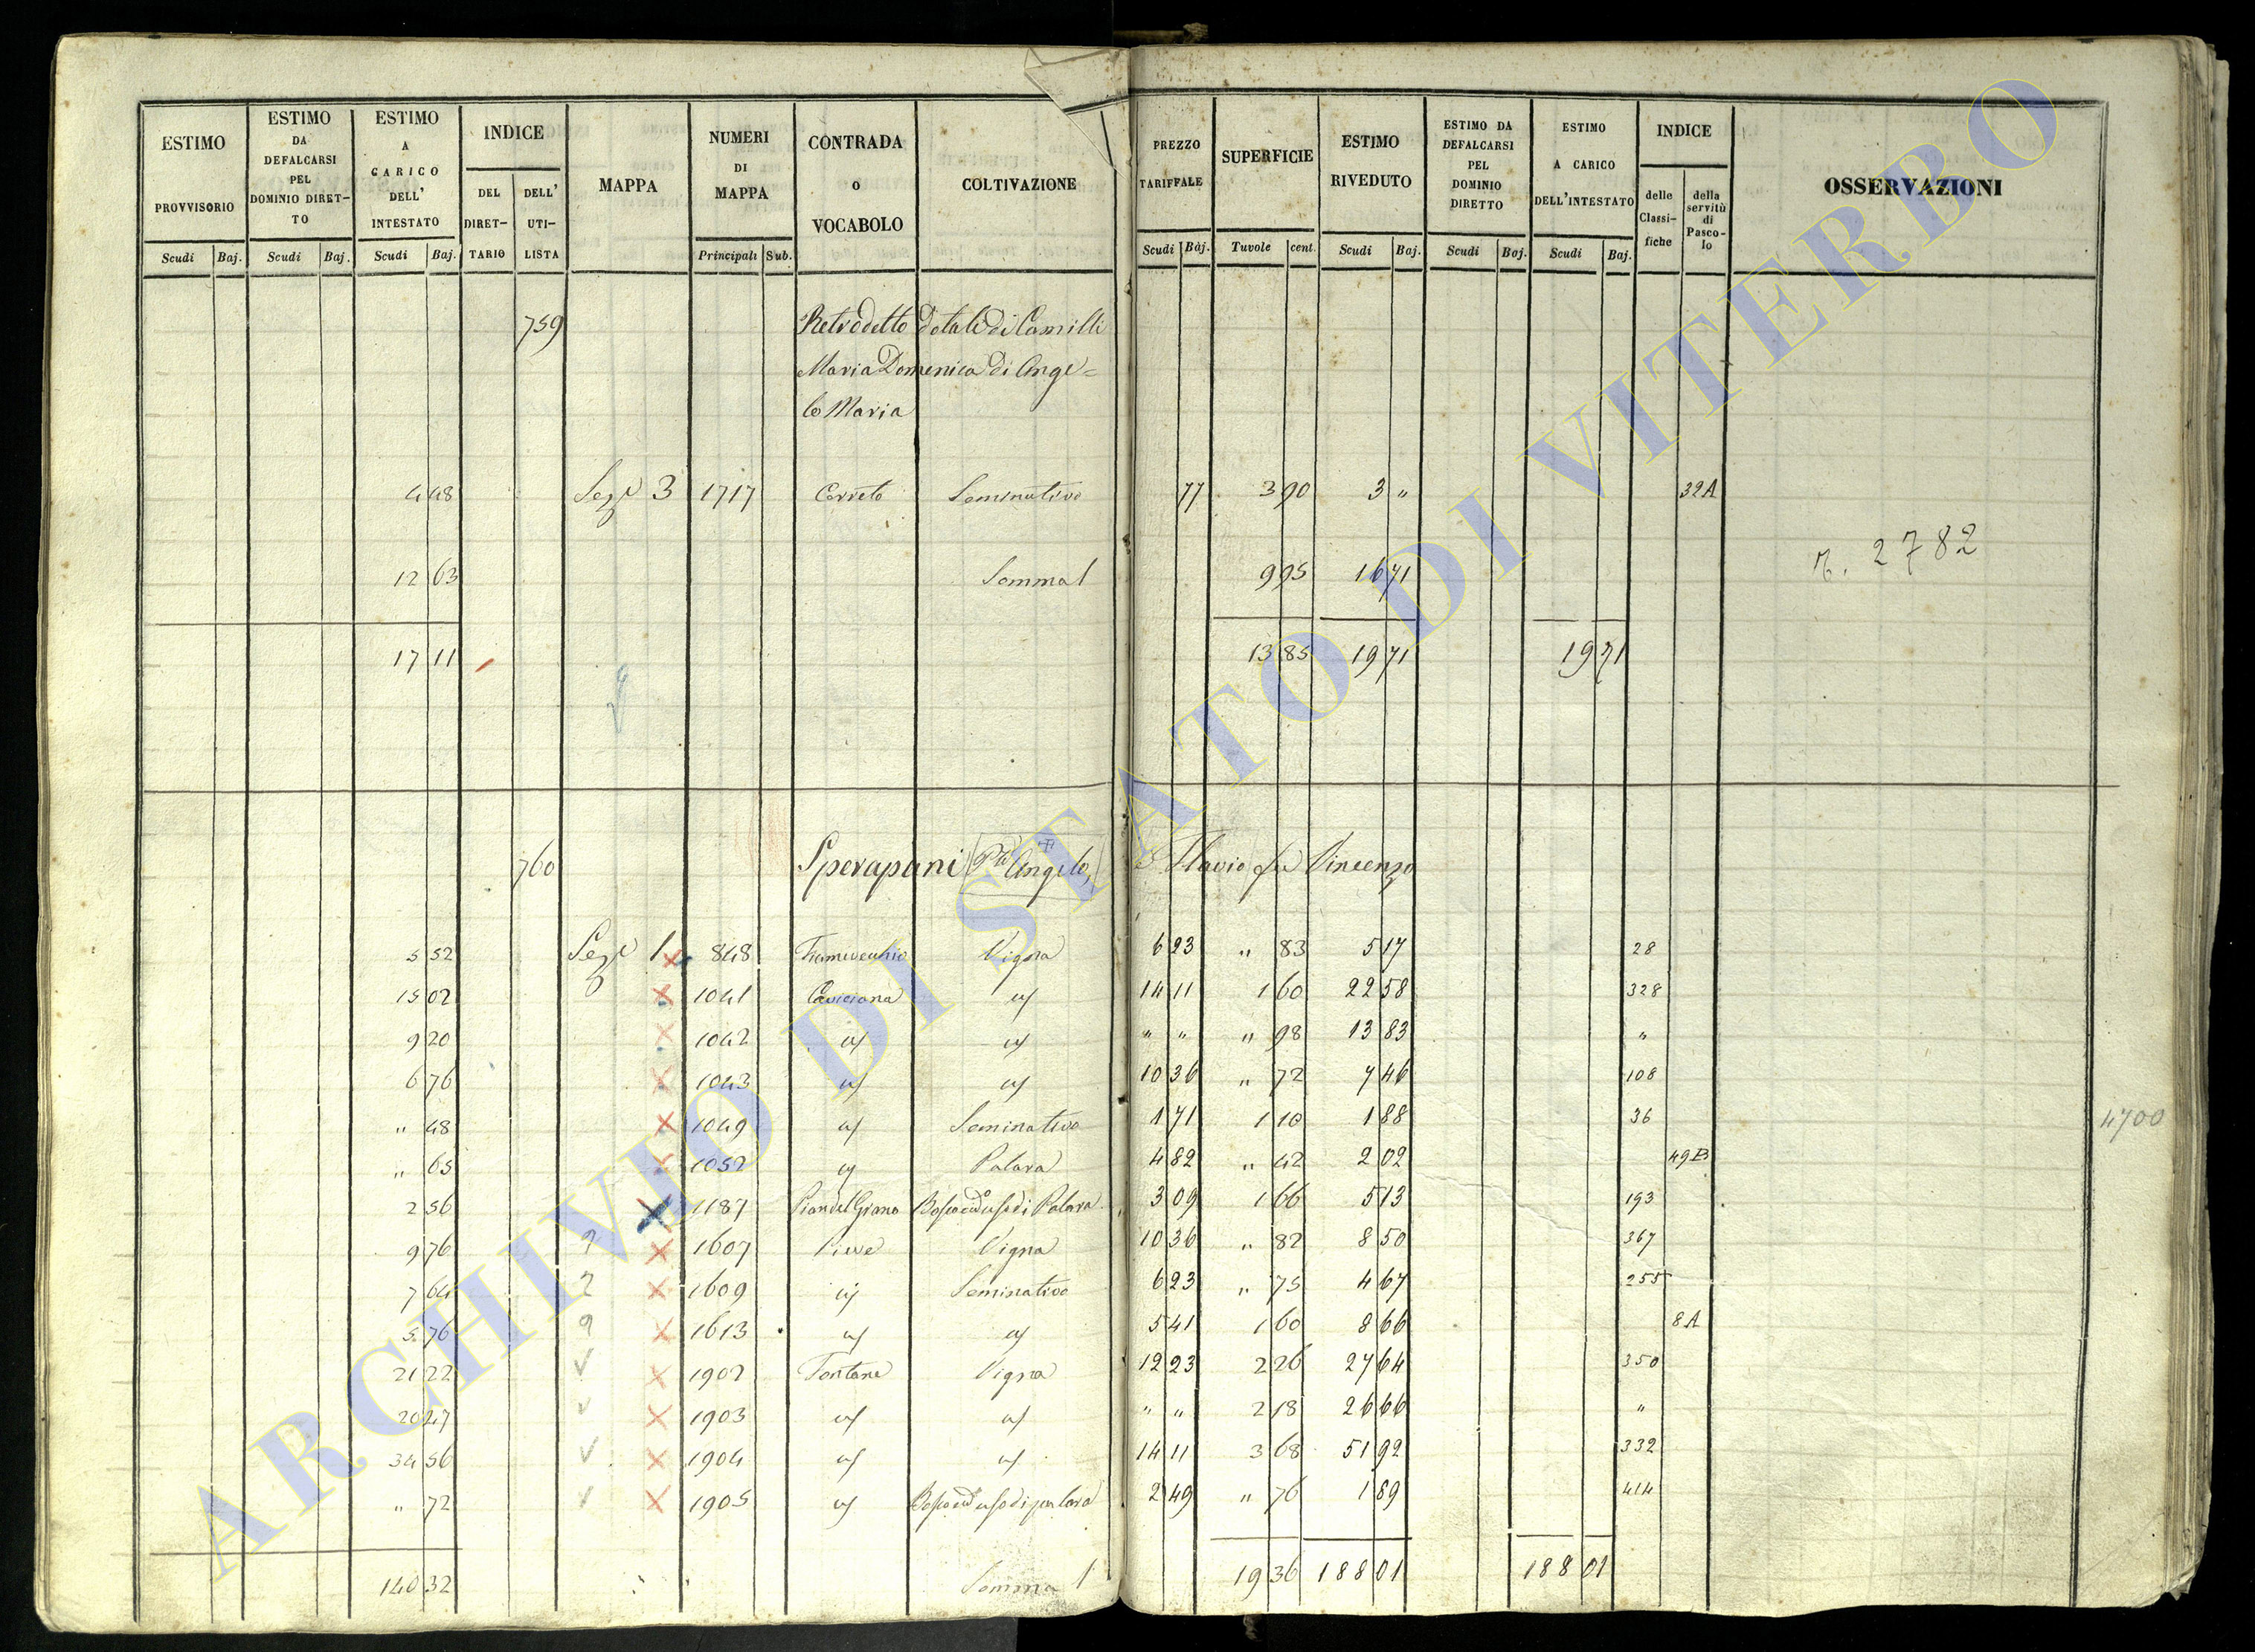 ESTIMO PROVVISORIO Scudi Baj.
ESTIMO DA DEFALCARSI PEL DOMINIO DIRET-TO Scudi Baj.
ESTIMO A CARICO DELL' INTESTATO Scudi Baj.
INDICE DEL DIRET-TARIO DELL' UTI-LISTA
MAPPA
NUMERI DI MAPPA Principali Sub.
CONTRADA O VOCABOLO
COLTIVAZIONE
PREZZO TARIFFALE Scudi Baj.
SUPERFICIE Tavole cent.
ESTIMO RIVEDUTO Scudi Baj.
ESTIMO DA DEFALCARSI PEL DOMINIO DIRETTO Scudi Baj.
ESTIMO A CARICO DELL'INTESTATO Scudi Baj.
INDICE delle Classi-fiche della servitù di Pasco-lo
OSSERVAZIONI
759 Retrodetto dotale di Camilli
Maria Domenica di Ange=
lo Maria
4 48 Sez.e 3 1717 Cerreto Seminativo 77 3 90 3 " 32A
n. 2782
12 63 Somma l 9 95 16 71
17 11 13 85 19 71 19 71
760 Sperapani Angelo, e Flavio fu Vincenzo
5 52 Sez.e 1 848 Vigna 6 23 " 83 5 17 28
15 02 1041 Caviciana " 14 11 1 60 22 58 328
9 20 1042 " " " " " 98 13 83 "
6 76 1043 " " 10 36 " 72 7 46 108
" 48 1049 " Seminativo 1 71 1 10 1 88 36
4700
" 65 1052 " Palara 4 82 " 42 2 02 49B
2 56 1187 Pian del Grano Bosco ad uso di Palara 3 09 1 66 5 13 193
9 76 1607 Pieve Vigna 10 36 " 82 8 50 367
7 64 1609 " Seminativo 6 23 " 75 4 67 255
5 76 1613 " " 5 41 1 60 8 66 8A
21 22 1902 Fontane Vigna 12 23 2 26 27 64 350
20 47 1903 " " " " 2 18 26 66 "
34 56 1904 " " 14 11 3 68 51 92 332
" 72 1905 " Bosco ad uso di palara 2 49 " 76 1 89 414
140 32 Somma l 19 36 188 01 188 01
ARCHIVIO DI STATO DI VITERBO